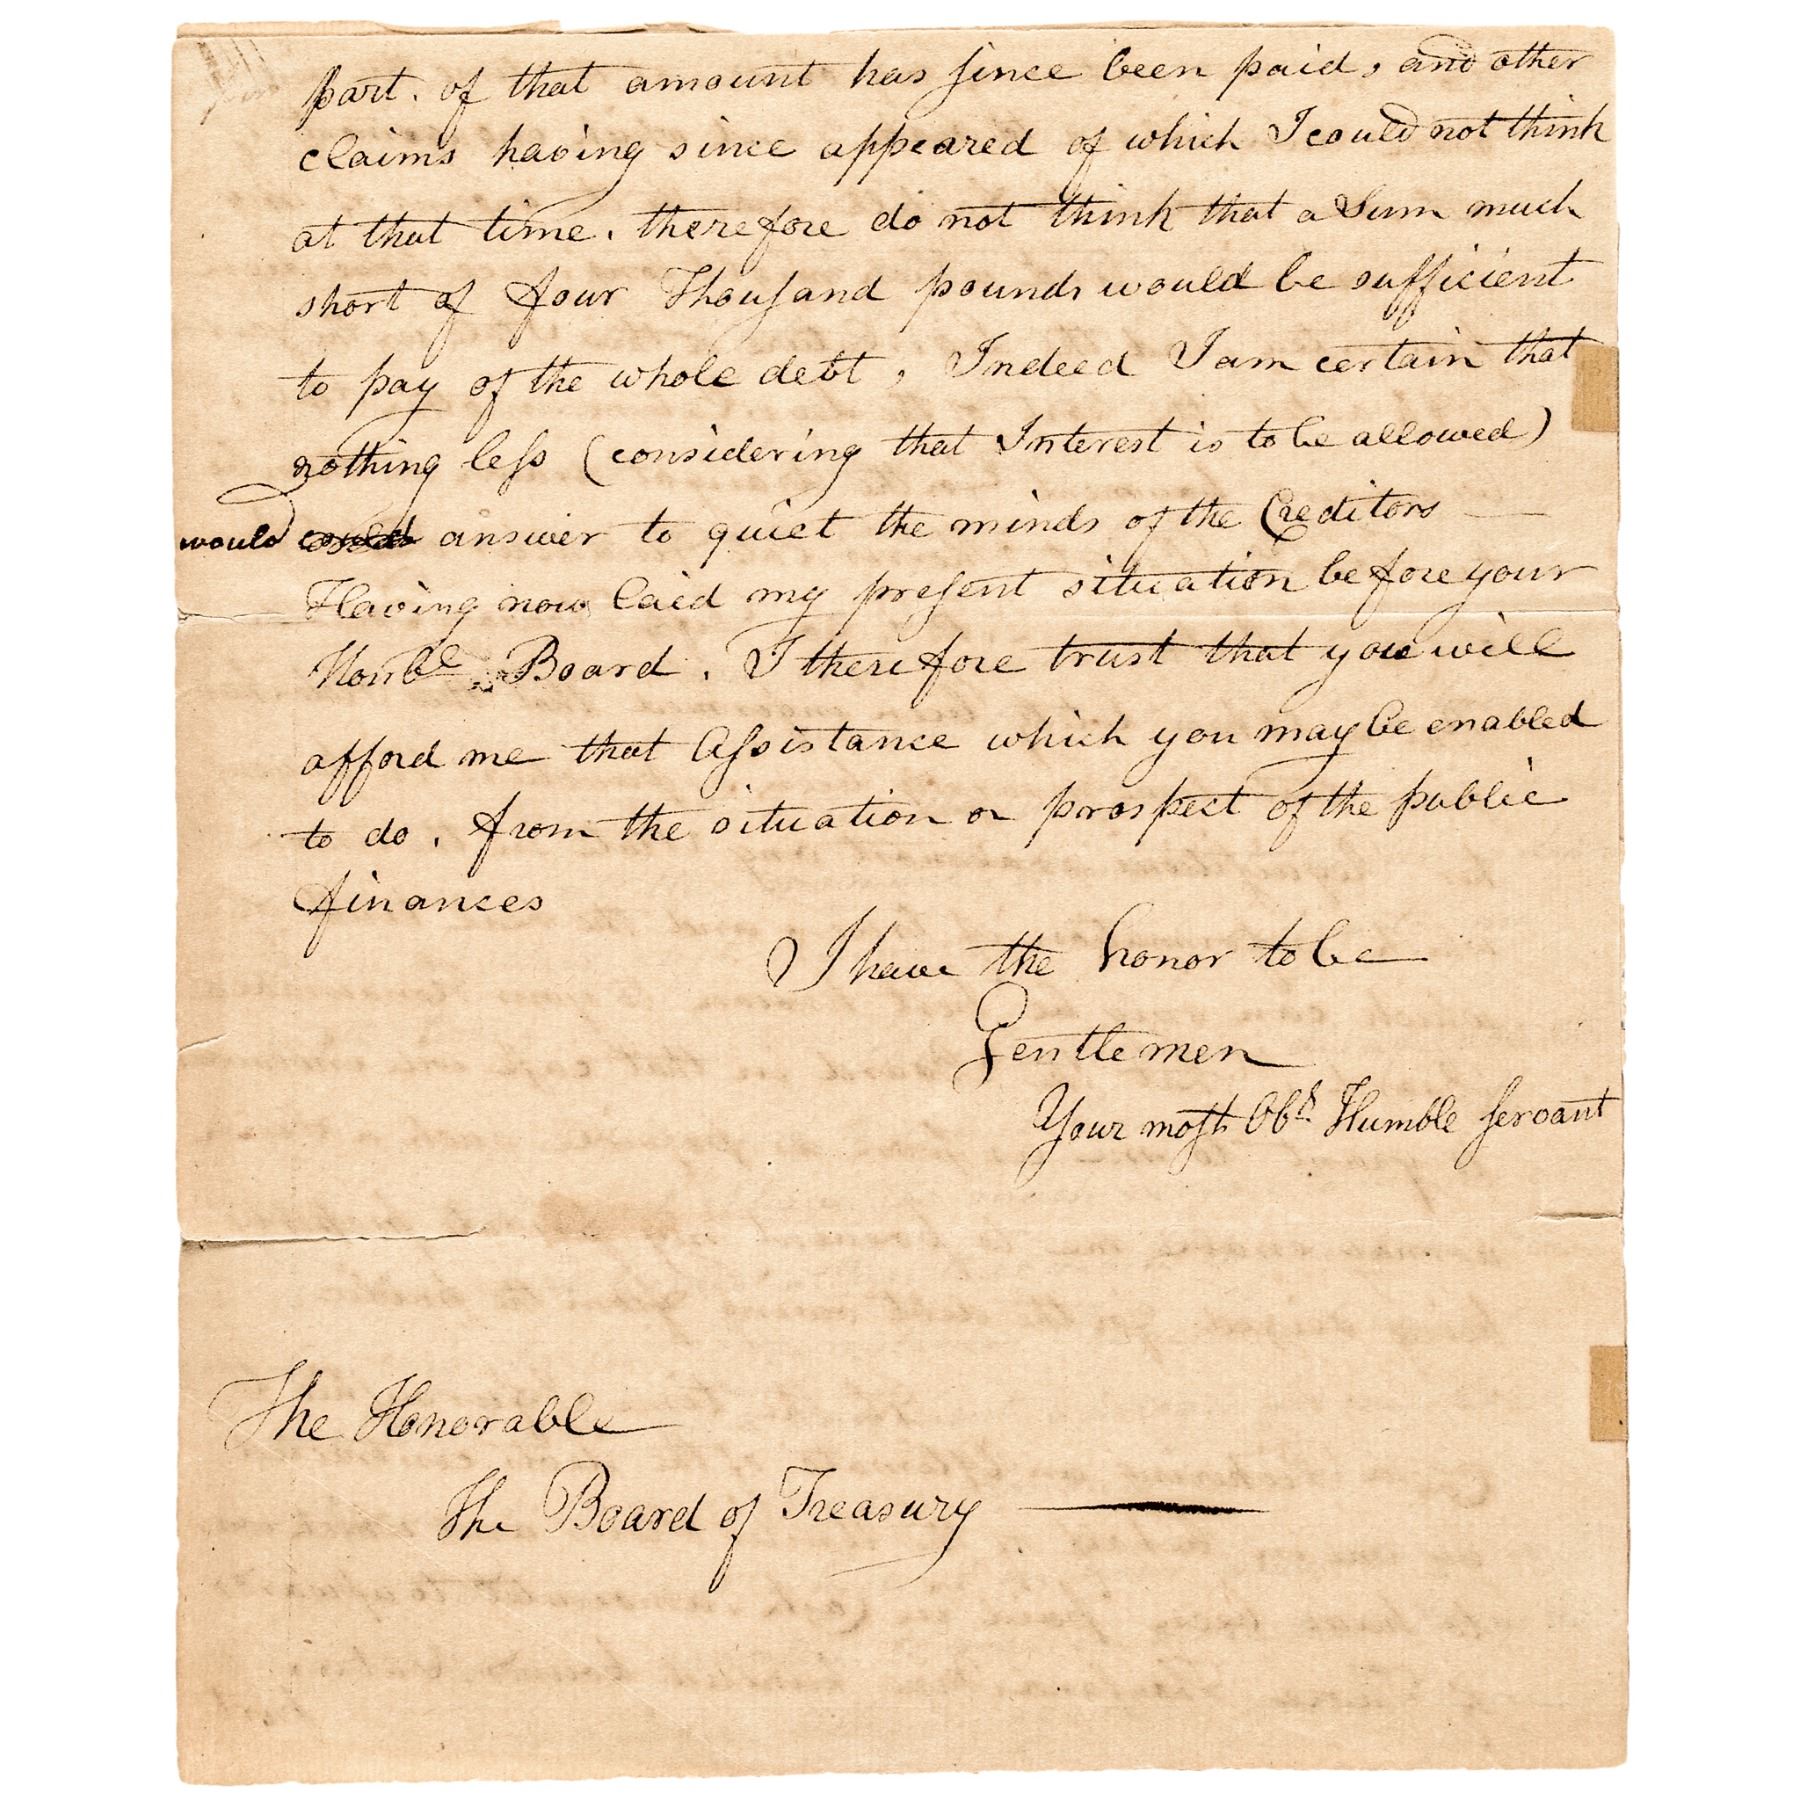 part. of that amount has since been paid, and other
claims having since appeared of which I could not think
at that time. therefore do not think that a Sum much
short of four Thousand pounds would be sufficient
to pay of the whole debt, Indeed I am certain that
nothing less (considering that Interest is to be allowed)
would could answer to quiet the minds of the Creditors —
Having now laid my present situation before your
Honble Board. I therefore trust that you will
afford me that Assistance which you may be enabled
to do. from the situation or prospect of the public
finances
I have the honor to be
Gentlemen
Your most Obt Humble Servant
The Honorable
The Board of Treasury —